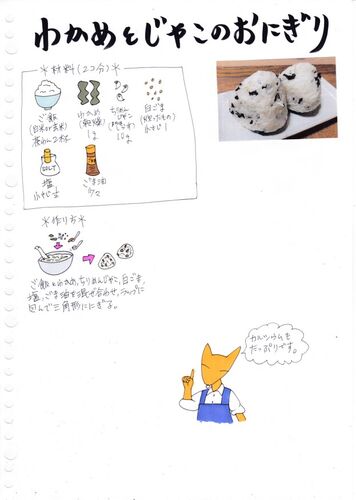 わかめとじゃこのおにぎり
*材料(2コ分)*
ご飯
(白米or玄米)
茶わん2杯
わかめ
(乾燥)
1g
ちりめん
じゃこ
10g
白ごま
小さじ1
SALT
塩
ごま油
少々
*作り方*
ご飯とわかめ、ちりめんじゃこ、白ごま、
塩、ごま油を混ぜ合わせ、ラップに
包んで三角形ににぎる。
カルシウムも
たっぷりです。